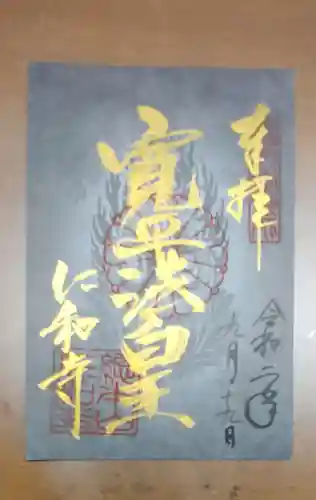 奉拝
令和二年
九月十九日
寛平法皇
仁和寺